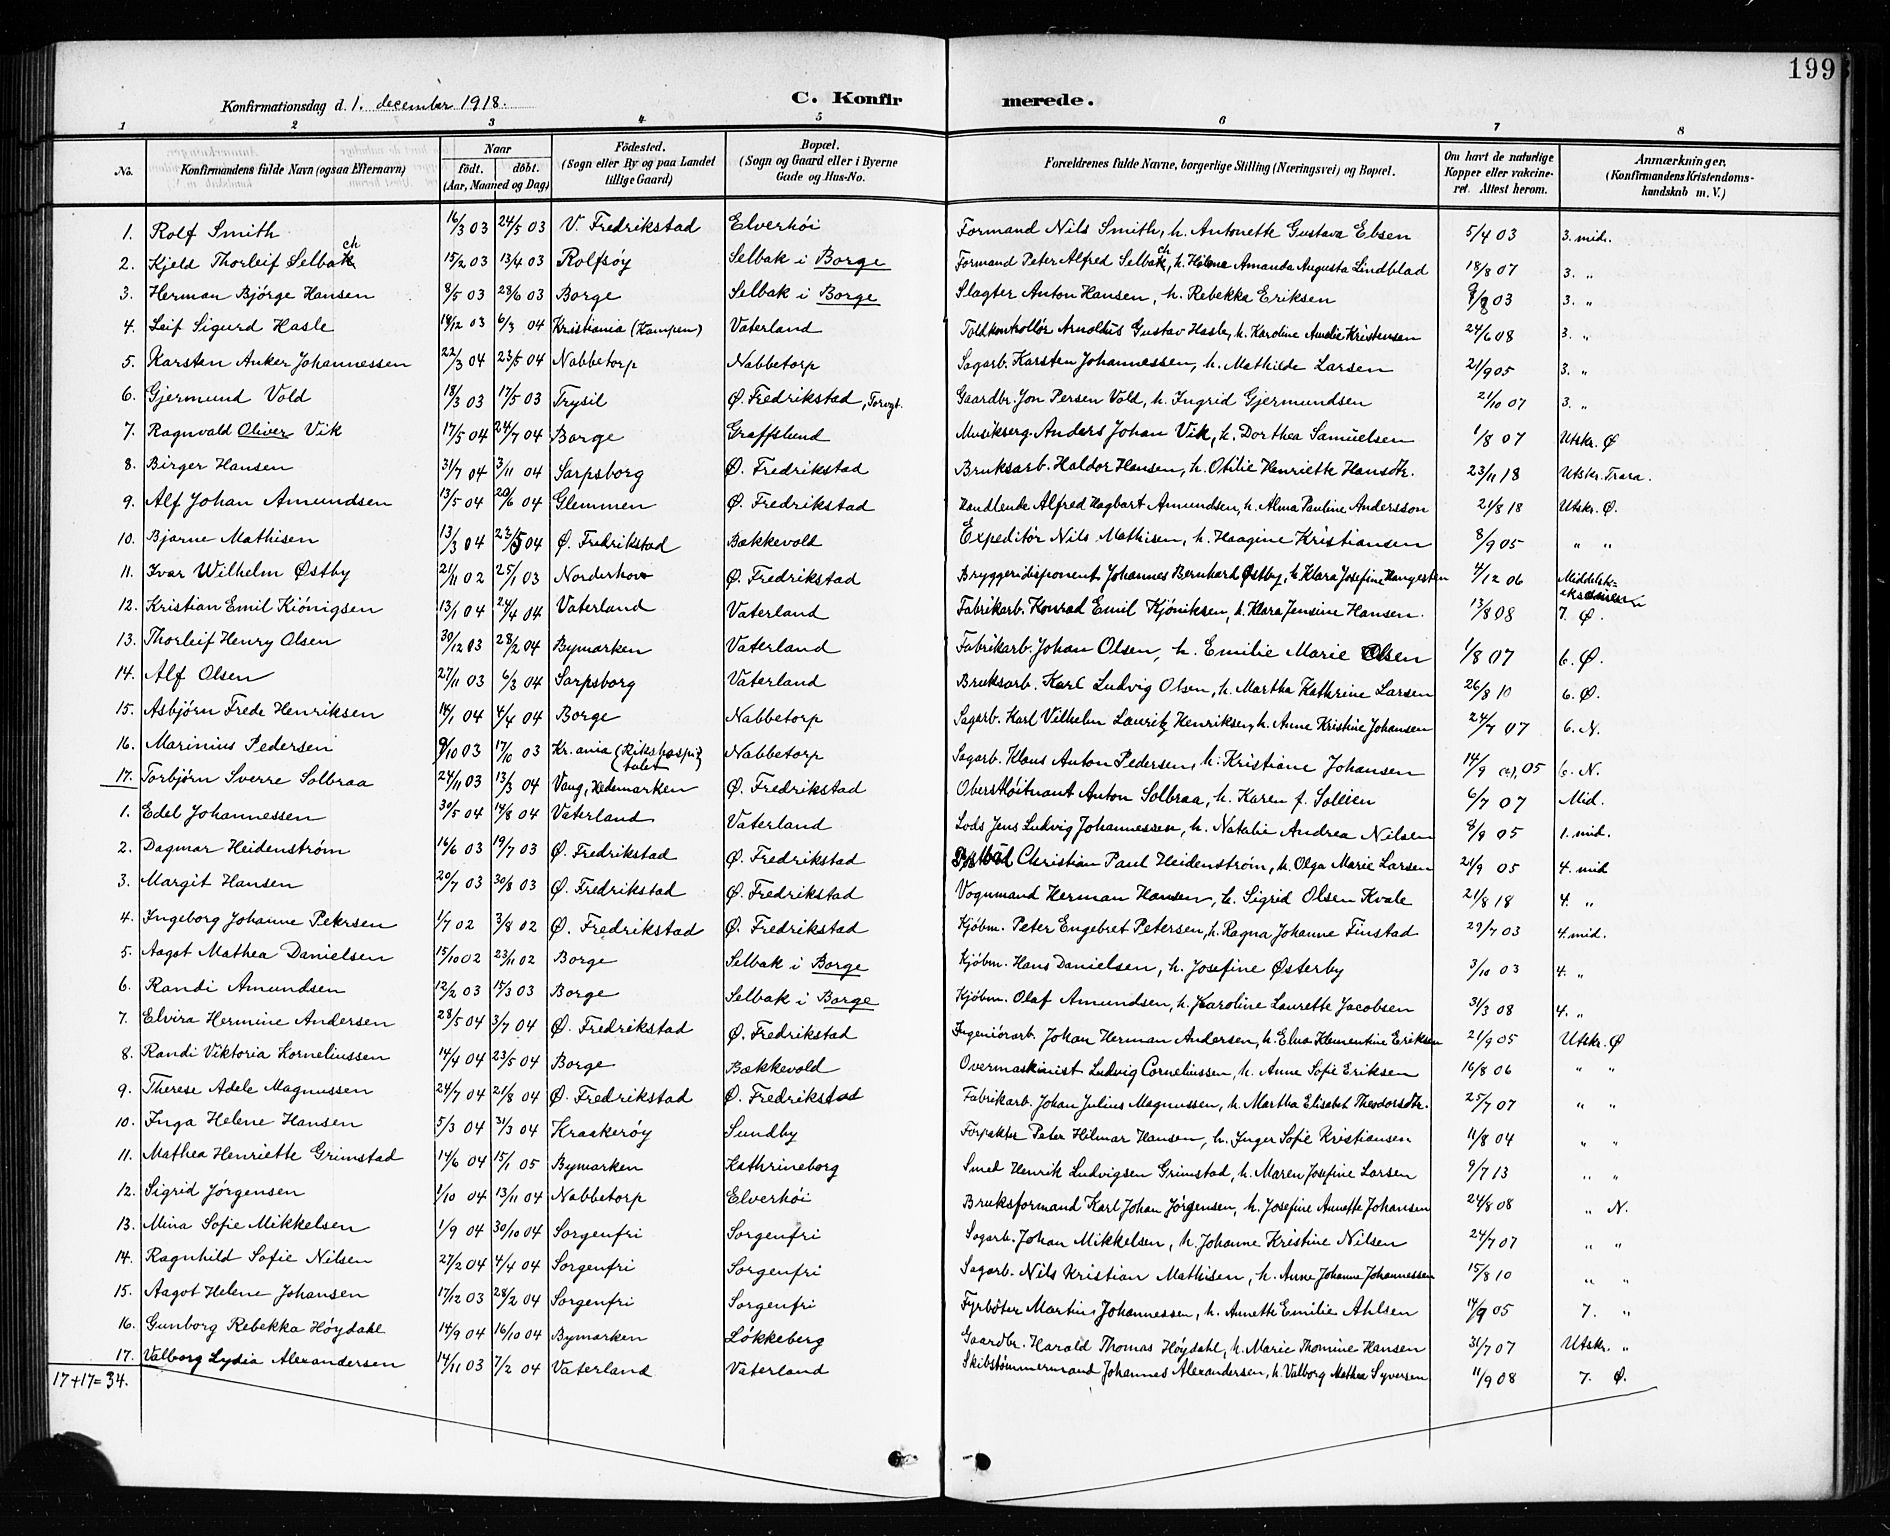 199
Konfirmationsdag d. 1. december 1918.
C. Konfirmerede.
1 2 3 4 5 6 7 8
No. Konfirmandens fulde Navn (ogsaa Efternavn) Naar født. døbt. (Aar, Maaned og Dag) Fødested. (Sogn eller By og paa Landet tillige Gaard) Bopæl. (Sogn og Gaard eller i Byerne Gade og Hus-No. Forældrenes fulde Navne, borgerlige Stilling (Næringsvei) og Bopæl. Om havt de naturlige Kopper eller vakcineret. Attest herom. Anmærkninger. (Konfirmandens Kristendomskundskab m. V.)
1. Rolf Smith 16/3 03 24/5 03 V. Fredrikstad Elverhöi Formand Nils Smith, h. Antonette Gustava Ebsen 5/4 03 3. mid.
2. Kjeld Thorleif Selbach 15/2 03 13/4 03 Rolfsöy Selbak i Borge Formand Peter Alfred Selbach, h. Helena Amanda Augusta Lindblad 18/8 07 3. "
3. Herman Bjórge Hansen 8/5 03 28/6 03 Borge Selbak i Borge Slagter Anton Hansen, h. Rebekka Eriksen 03 3. "
4. Leif Sigurd Hasle 14/12 03 6/3 04 Kristiania (Kampen) Vaterland Toldkontrollör Arnoldus Gustav Hasle, h. Karoline Amelie Kristensen 24/6 08 3. "
5. Karsten Anker Johannessen 22/3 04 23/5 04 Nabbetorp Nabbetorp Sagarb. Karsten Johannessen, h. Mathilde Larsen 21/9 05 3. "
6. Gjermund Vold 18/3 03 17/5 03 Trysil Ø. Fredrikstad, Torvgt. Gaardbr. Jon Persen Vold, h. Ingrid Gjermundsen 21/10 07 3. "
7. Ragnvald Oliver Vik 17/5 04 24/7 04 Borge Graffslund Musikserg. Anders Johan Vik, h. Dorthea Samuelsen 1/8 07 Utskr. Ø
8. Birger Hansen 31/7 04 3/11 04 Sarpsborg Ø. Fredrikstad Bruksarb. Haldor Hansen, h. Otilie Henriette Hansdtr. 23/11 18 Utskr. Trara.
9. Alf Johan Amundsen 13/5 04 20/6 04 Glemmen Ø. Fredrikstad Handlende Alfred Hagbart Amundsen, h. Alma Pauline Andersson 21/8 18 Utskr. Ø.
10. Bjarne Mathisen 13/3 04 23/5 04 Ø. Fredrikstad Bækkevold Expeditör Nils Mathisen, h. Haagine Kristiansen 8/9 05 " "
11. Ivar Wilhelm Østby 21/11 02 25/1 03 Norderhov Ø. Fredrikstad Bryggeridisponent Johannes Bernhard Østby, h. Klara Josefine 4/12 06 Middelskeksamen
12. Kristian Emil Kiönigsen 13/1 04 24/4 04 Vaterland Vaterland Fabrikarb. Konrad Emil Kjöniksen, h. Klara Jensine Hansen. 13/8 08 7. Ø.
13. Thorleif Henry Olsen 30/12 03 28/2 04 Bymarken Vaterland Fabrikarb. Johan Olsen, h. Emilie Marie Olsen 1/8 07 6. Ø.
14. Alf Olsen 27/11 03 6/3 04 Sarpsborg Vaterland Bruksarb. Karl Ludvig Olsen, h. Martha Kathrine Larsen 26/8 10 6. Ø.
15. Asbjörn Frede Henriksen 14/1 04 4/4 04 Borge Nabbetorp Sagarb. Karl Vilhelm Lauritz Henriksen, h. Anne Kristine Johansen 24/7 07 6. N.
16. Marinius Pedersen 9/10 03 17/10 03 Kr.ania (Rikshospitalet) Nabbetorp Sagarb. Klaus Anton Pedersen, h. Kristiane Johansen 14/9 05 6. N.
17. Torbjörn Sverre Solbraa 24/11 03 13/3 04 Vang, Hedemarken Ø. Fredrikstad Oberstlöitnant Anton Solbraa, h. Karen f. Solleien 6/7 07 Mid.
1. Edel Johannessen 30/5 04 14/8 04 Vaterland Vaterland Lods Jens Ludvig Johannessen, h. Natalie Andrea Nilsen 8/9 05 1. mid.
2. Dagmar Heidenström 16/6 03 19/7 03 Ø. Fredrikstad Ø. Fredrikstad Christian Paul Heidenström, h. Olga Marie Larsen 24/9 05 4. mid
3. Margit Hansen 20/7 03 30/8 03 Ø. Fredrikstad Ø. Fredrikstad Vognmand Herman Hansen, h. Sigrid Olsen Kvale 21/8 18 4. "
4. Ingeborg Johanne Petersen 1/7 02 3/8 02 Ø. Fredrikstad Ø. Fredrikstad Kjöbm. Peter Engebret Petersen, h. Ragna Johanne Finstad 29/7 03 4. mid.
5. Aagot Mathea Danielsen 15/10 02 23/11 02 Borge Selbak i Borge Kjöbm. Hans Danielsen, h. Josefine Østerby 3/10 03 4. "
6. Randi Amundsen 12/2 03 15/3 03 Borge Selbak i Borge Kjöbm. Olaf Amundsen, h. Karoline Laurette Jacobsen 31/3 08 4. "
7. Elvira Hermine Andersen 28/5 04 3/7 04 Ø. Fredrikstad Ø. Fredrikstad Ingeniörarb. Johan Herman Andersen, h. Elna Klementine Eriksen 21/9 05 Utskr. Ø
8. Randi Viktoria Korneliussen 14/4 04 23/5 04 Borge Bækkevold Overmaskinist Ludvig Corneliussen, h. Anne Sofie Eriksen 16/8 06 " "
9. Therese Adele Magnussen 24/7 04 21/8 04 Ø. Fredrikstad Ø. Fredrikstad Fabrikarb. Johan Julius Magnussen, h. Martha Elisabet Theodorsdtr. 25/7 07 " "
10. Inga Helene Hansen 5/3 04 31/3 04 Kraakeröy Sundby Forpakter Peter Hilmar Hansen, h. Inger Sofie Kristiansen 11/8 04 " "
11. Mathea Henriette Grimstad 14/6 04 15/1 05 Bymarken Kathrineborg Smed Henrik Ludvigsen Grimstad, h. Maren Josefine Larsen 9/7 13 " "
12. Sigrid Jörgensen 1/10 04 13/11 04 Nabbetorp Elverhöi Bruksformand Karl Johan Jörgensen, h. Josefine Annette Johansen 24/8 08 " N.
13. Mina Sofie Mikkelsen 1/9 04 30/10 04 Sorgenfri Sorgenfri Sagarb. Johan Mikkelsen, h. Johanne Kristine Nilsen 24/7 07 " "
14. Ragnhild Sofie Nilsen 27/2 04 4/4 04 Sorgenfri Sorgenfri Sagarb. Nils Kristian Mathisen, h. Anne Johanne Johannessen 15/8 10 " "
15. Aagot Helene Johansen 17/12 03 28/2 04 Sorgenfri Sorgenfri Fyrböter Martin Johannessen, h. Annette Emilie Ahlsen 14/9 05 7. "
16. Gunborg Rebekka Höydahl 14/9 04 16/10 04 Bymarken Lökkeberg Gaardbr. Harald Thomas Höydahl, h. Marie Thomine Hansen 31/7 07 Utskr. "
17. Valborg Lydia Alexandersen 14/11 03 7/2 04 Vaterland Vaterland Skibstömmermand Johannes Alexandersen, h. Valborg Mathea Syversen 11/9 08 7. Ø.
17+17=34.